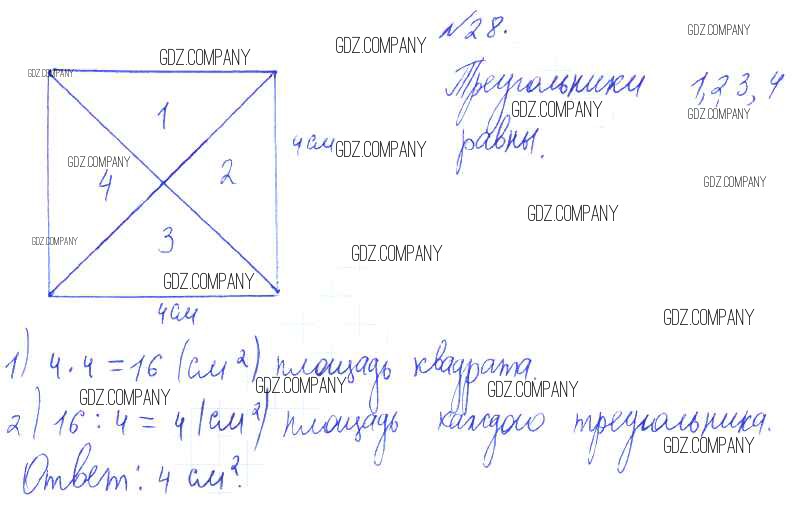 №28.
GDZ.COMPANY
GDZ.COMPANY
GDZ.COMPANY
GDZ.COMPANY
Треугольники 1,2 3,4
1
GDZ.COMPANY
GDZ.COMPANY
равны.
4см
GDZ.COMPANY
GDZ.COMPANY
4
2
GDZ.COMPANY
GDZ.COMPANY
3
GDZ.COMPANY
GDZ.COMPANY
GDZ.COMPANY
4см
GDZ.COMPANY
1) 4·4=16 (см²) площадь квадрата.
GDZ.COMPANY
GDZ.COMPANY
GDZ.COMPANY
2) 16:4=4 (см²) площадь каждого треугольника.
GDZ.COMPANY
Ответ: 4 см².